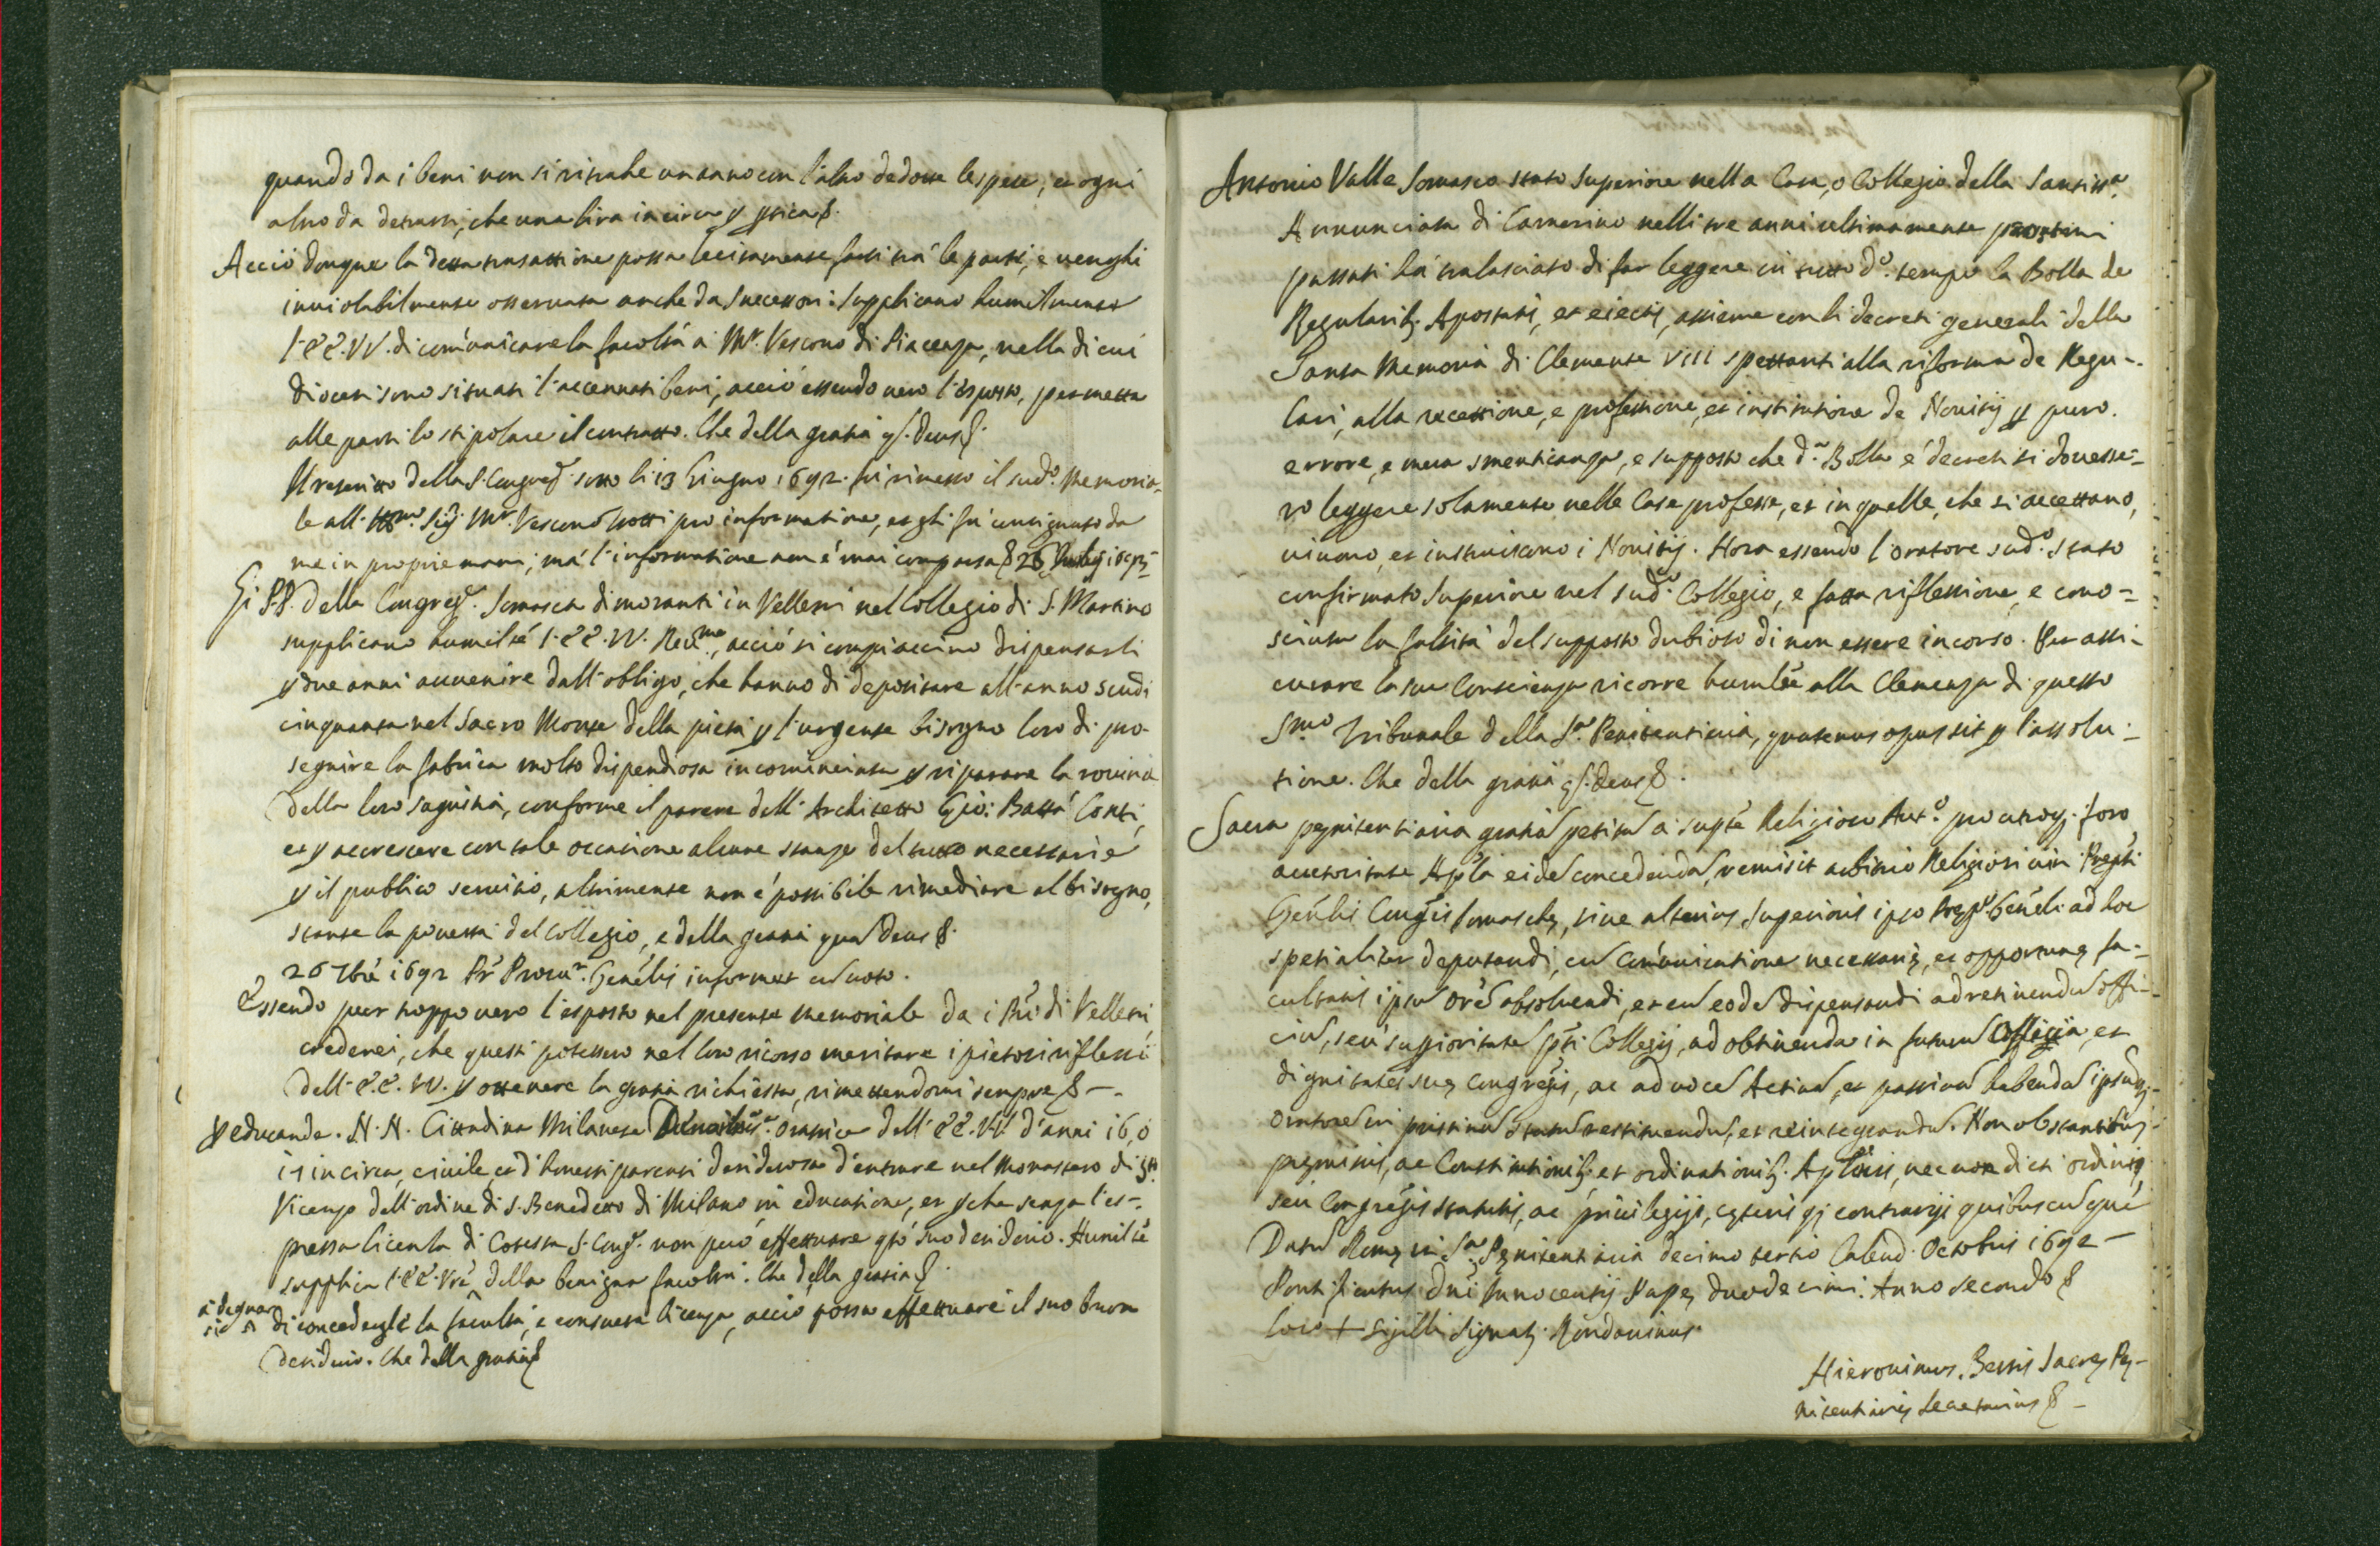 quando da i beni non si ritrahe un anno con l'altro dedotte le spese, et ogni
altro da detrarsi, che una lira in circa p pertica &.
Acciò dunque la detta transattione possa lecitamente farsi trà le parti, e venghi
inviolabilmente osservata anche da successori: supplicano humilmente
l'EE. VV. di comúnicare la facoltà a Mr. Vescovo di Piacenza, nella di cui
diocesi sono situati l'accennati beni, acciò essendo vero l'esposto, permetta
alle parti lo stipolare il contratto. Che della gratia q̃. Deus &.
Il rescritto della S. Congreg. sotto li 13 Giugno 1692. fù rimesso il sud.º Memoria-
le all' Ill.mo Sig. Mr. Vescovo pro informatione, et gli fu consignato da
me in proprie mani; mà l'informatione non è mai comparsa &
Gi P.P. della Congreg. Somasca dimoranti in Velletri nel Collegio di S. Martino
supplicano humilté l'EE. VV. Rev.me, acciò si compiaccino dispensarli
p due anni avvenire dall'obligo, che hanno di depositare all'anno scudi
cinquanta nel Sacro Monte della pietà p l'urgente bisogno loro di pro-
seguire la fabrica molto dispendiosa incominciata p riparare la rovina
della loro sagristia, conforme il parere dell' Architetto Gio: Batta Conti,
et p accrescere con tale occasione alcune stanze del tutto necessarie
p il publico servitio, altrimente non è possibile rimediare al bisogno,
stante la povertà del Collegio, e della gratia qua Deus &.
26 7bre 1692 Pr Procur. Genélis informet cu voto.
Essendo pur troppo vero l'esposto nel presente memoriale da i PP. di Velletri,
crederei, che questi potessero nel loro ricorso meritare i pietosi riflessi
dell' EE. VV. p ottenere la gratia richiesta, rimettendomi sempre & -
p educanda. N. N. Cittadina Milanese oratrice dell' EE. VV. d'anni 16, ò
17 in circa, civile, et d'honesti parenti desiderosa d'entrare nel Monastero di S.
Vicenzo dell'ordine di S. Benedetto di Milano in educatione, et p che senza l'es-
pressa licenza di Cotesta S. Cong. non può effettuare qto suo desiderio. Humilté
supplica l'EE. Vre della benigna facoltà. Che della gratia &.
à degnarsi di concedergli la facultà, e consueta licenza, acciò possa effettuare il suo buon
desiderio. Che della gratia &
Antonio Valle Somasco stato Superiore nella Casa, o Collegio della Santiss.a
Annunciata di Camerino nelli tre anni ultimamente prossimi
passati hà tralasciato di far leggere in tutto d.º tempo la Bolla de
Regularib. Apostatis, et eiectis, assieme con li decreti generali della
Santa Memoria di Clemente VIII spettanti alla riforma de Regu-
lari, alla recettione, e professione, et institutione de Novitij p puro
errore, e mera smenticanza, e supposto che d.a Bolla e decreti si dovesse-
ro leggere solamente nelle Case professe, et in quelle, che si accettano,
vivono, et instruiscono i Novitij. Hora essendo l'oratore sud.º stato
confirmato Superiore nel sud.º Collegio, e fatta riflessione, e cono-
sciuta la falsità del supposto dubioso di non essere incorso. Per assi-
curare la sua Conscienza ricorre humilté alla Clemenza di questo
S.mo Tribunale della S.a Penitentiaria, quatenus opus sit p l'assolu-
tione. Che della gratia q̃. Deus &.
Sacra penitentiaria gratia petita a supte Religioso Ant.º pro utroq. foro
auctoritate Aplã eide concedenda, remisit arbitrio Religiosi viri Prepti
Genélis Congnis Somasche, sive alterius Superioris ipso Prep.º Genéli ad hoc
spetialiter deputandi, cu comúnicatione necessarie, et opportune fa-
cultatis ipsu oré absolvendi, et cu eode dispensandi ad retinendu offi-
ciu, seu supioritate pti Collegij, ad obtinenda in futuru Officia, et
dignitates sue Congregis, ac ad voce Activa, et passiva habenda, ipsuq.
oratore in pristinu statu restituendu, et reintegrandu. Non obstantibus
premissis, ac Constitutionib. et ordinationib. Aplicis, nec non dicti ordinis,
seu Congregis statutis, ac privilegijs, ceteris q contrarijs quibuscuque
Datu Rome in S.a Penitentiaria decimo tertio Calend. Octobris 1692 -
Pontificatus dni Innocentij Pape duodecimi. Anno secondo &
Loco + Sigilli Signat.
Hieronimus . Sacre Pe-
nitentiarie Secretarius & -